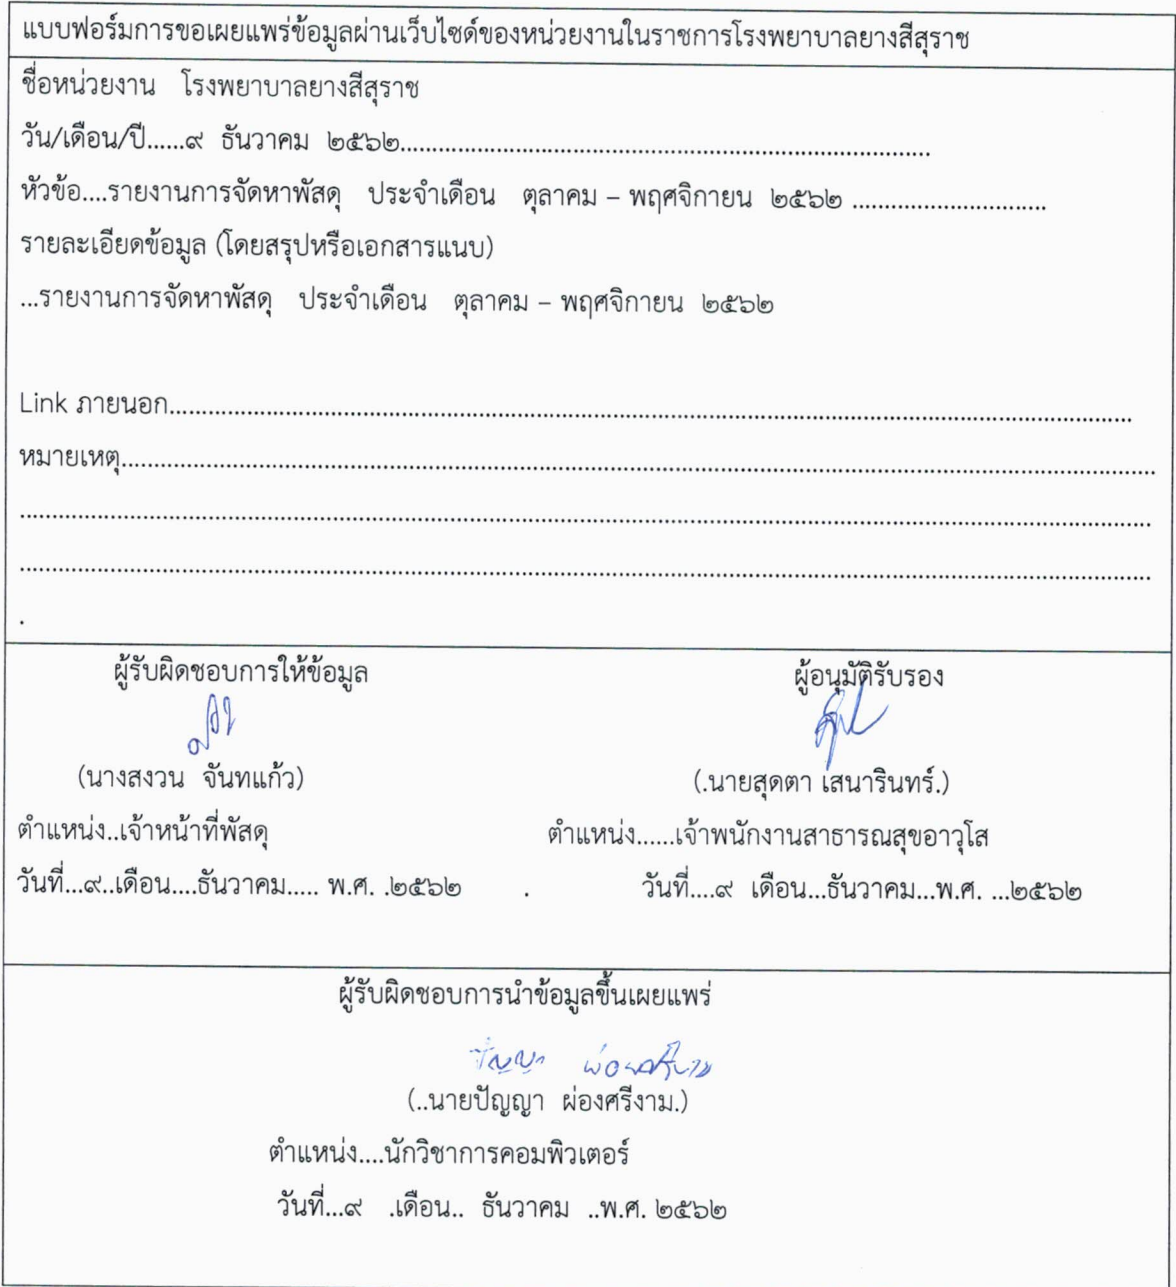 แบบฟอร์มการขอเผยแพร่ข้อมูลผ่านเว็บไซต์ของหน่วยงานในราชการโรงพยาบาลยางสีสุราช
ชื่อหน่วยงาน โรงพยาบาลยางสีสุราช
วัน/เดือน/ปี......๙ ธันวาคม ๒๕๖๒..................................................................................
หัวข้อ....รายงานการจัดหาพัสดุ ประจำเดือน ตุลาคม – พฤศจิกายน ๒๕๖๒ ..............................
รายละเอียดข้อมูล (โดยสรุปหรือเอกสารแนบ)
...รายงานการจัดหาพัสดุ ประจำเดือน ตุลาคม – พฤศจิกายน ๒๕๖๒
Link ภายนอก....................................................................................................................................................
หมายเหตุ................................................................................................................................................................
..............................................................................................................................................................................
..............................................................................................................................................................................
.
ผู้รับผิดชอบการให้ข้อมูล ผู้อนุมัติรับรอง
(นางสงวน จันทแก้ว) (.นายสุดตา เสนารินทร์.)
ตำแหน่ง..เจ้าหน้าที่พัสดุ ตำแหน่ง......เจ้าพนักงานสาธารณสุขอาวุโส
วันที่...๙..เดือน....ธันวาคม..... พ.ศ. .๒๕๖๒ . วันที่....๙ เดือน...ธันวาคม...พ.ศ. ...๒๕๖๒
ผู้รับผิดชอบการนำข้อมูลขึ้นเผยแพร่
ปัญญา ผ่องศรีงาม
(..นายปัญญา ผ่องศรีงาม.)
ตำแหน่ง....นักวิชาการคอมพิวเตอร์
วันที่...๙ .เดือน.. ธันวาคม ..พ.ศ. ๒๕๖๒